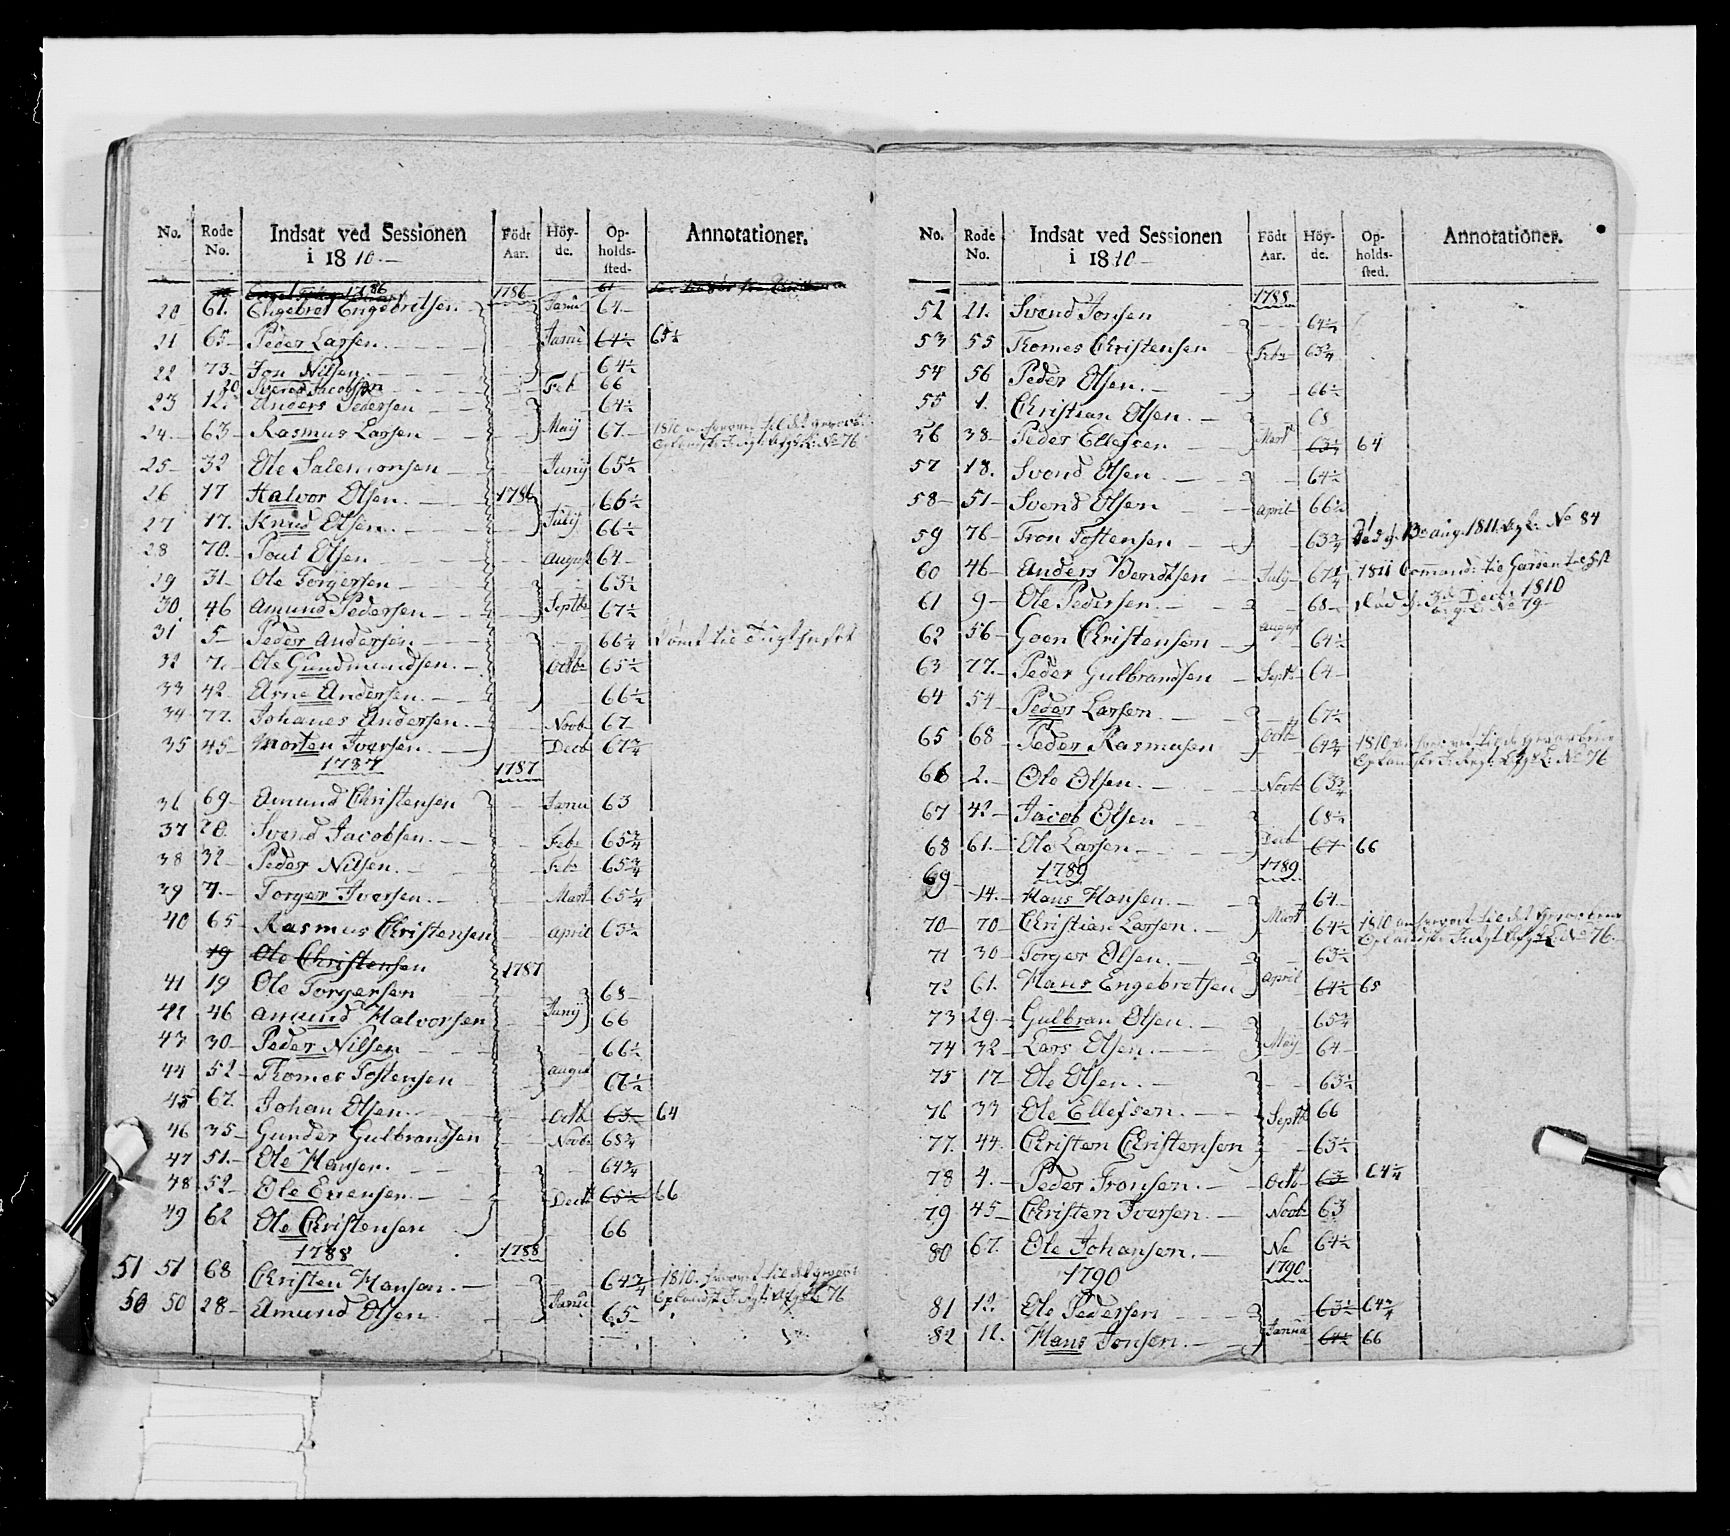 No. Rode No. Indsat ved Sessionen i 1810. Födt Aar. Höyde. Opholdssted. Annotationer.
1786
20 61. Engebret Engebritsen Janu 64
21 65 Peder Larsen Janu 64½ 65½
22 73 Jon Nilsen 64½
20 Svend Jacobsen Feb 66
23 12. Anders Pedersen 64½
24 63 Rasmus Larsen Maij 67 1810
Oplandske No 76
25 32 Ole Salemonsen Junij 65½
26 17 Halvor Olsen 1786 66½
27 17. Knud Olsen Julij 66½
28 70 Poul Olsen August 64
29 31 Ole Torgersen 63½
30 46 Amund Pedersen Septbr 67½
31 5 Peder Andersen 66¼ Dömt til Tugthuset
32 7. Ole Gundmundsen Octbr 65½
33 42 Arne Andersen 66½
34 77. Johanes Andersen Novb 67
35 45 Morten Iversen Decb 67¾
1787 1787
36 69 Amund Christensen Janu 63
37 20. Svend Jacobsen Febr 65¾
38 32 Peder Nilsen Febr 65¾
39 7. Torger Iversen Mart 65¼
40 65 Rasmus Christensen April 63½
19 Ole Christensen 1787
41 19 Ole Torgersen 68
42 46 Amund Halvorsen Junij 66
43 30 Peder Nilsen 66½
44 52 Thomes Tostensen August 67½
45 67. Johan Olsen Octb 63 64
46 35 Gunder Gulbrandsen Novb 68¾
47 51. Ole Hansen 64¾
48 52 Ole Evensen Decb 65½ 66
49 62 Ole Christensen 66
1788 1788
51 51 68 Christen Hansen 64¾ 1810
Oplandske No 76
50 50 28 Amund Olsen Janu 65
No. Rode No. Indsat ved Sessionen i 1810. Födt Aar. Höyde. Opholdssted. Annotationer.
1788
52 21. Svend Jonsen 64½
53 55 Thomes Christensen Febr 63¾
54 56 Peder Olsen 66½
55 1. Christian Olsen 68
56 38 Peder Ellefsen Mart 63½ 64
57 18. Svend Olsen 64½
58 51 Svend Olsen April 66½
59 76 Tron Tostensen 63¾ Död d. 13 aug. 1811 No 84
60 46 Anders Bendtsen July 67¼ 1811 Command: til Garden
61 9 Ole Pedersen 68 Död d. Decbr 1810
No 79
62 56 Goen Christensen August 64½
63 77. Peder Gulbrandsen Septbr 64
64 54 Peder Larsen 67½
65 68 Peder Rasmusen Octb 64¾ 1810
Oplandske No 76
66 2. Ole Olsen Novbr 63¾
67 42 Jacob Olsen 68½
68 61. Ole Larsen Decb 67 66
1789 1789
69 14. Hans Hansen 64
70 70 Christian Larsen Mart 64½ 1810
Oplandske No 76
71 30 Torger Olsen 63½
72 61. Hans Engebretsen April 64½ 65
73 29. Gulbran Olsen 65¾
74 32 Lars Olsen Maij 64
75 17 Ole Olsen 63½
76 33 Ole Ellefsen Septbr 66
77. 44. Christen Christensen 63½
78 4. Peder Tronsen Octb 63 64¼
79 45 Christen Iversen Novbr 63
80 67. Ole Johansen No 64½
1790 1790
81 12. Ole Pedersen 63½ 64¾
82 12. Hans Jonsen Janua 64½ 66